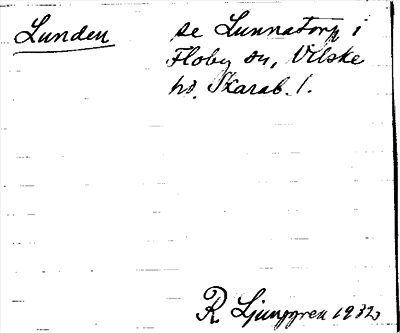 Lunden
se Lunnatorp i
Floby sn, Vilske
hd. Skarab. l.
R Ljunggren 1932